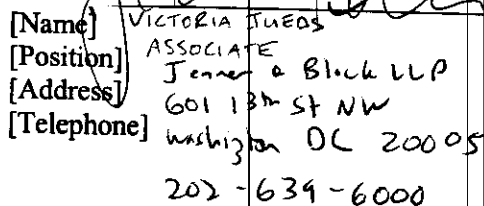 [Name] VICTORIA JUEDS
[Position] ASSOCIATE
[Address] Jenner & Block LLP
601 13th St NW
[Telephone] Washington DC 20005
202-639-6000